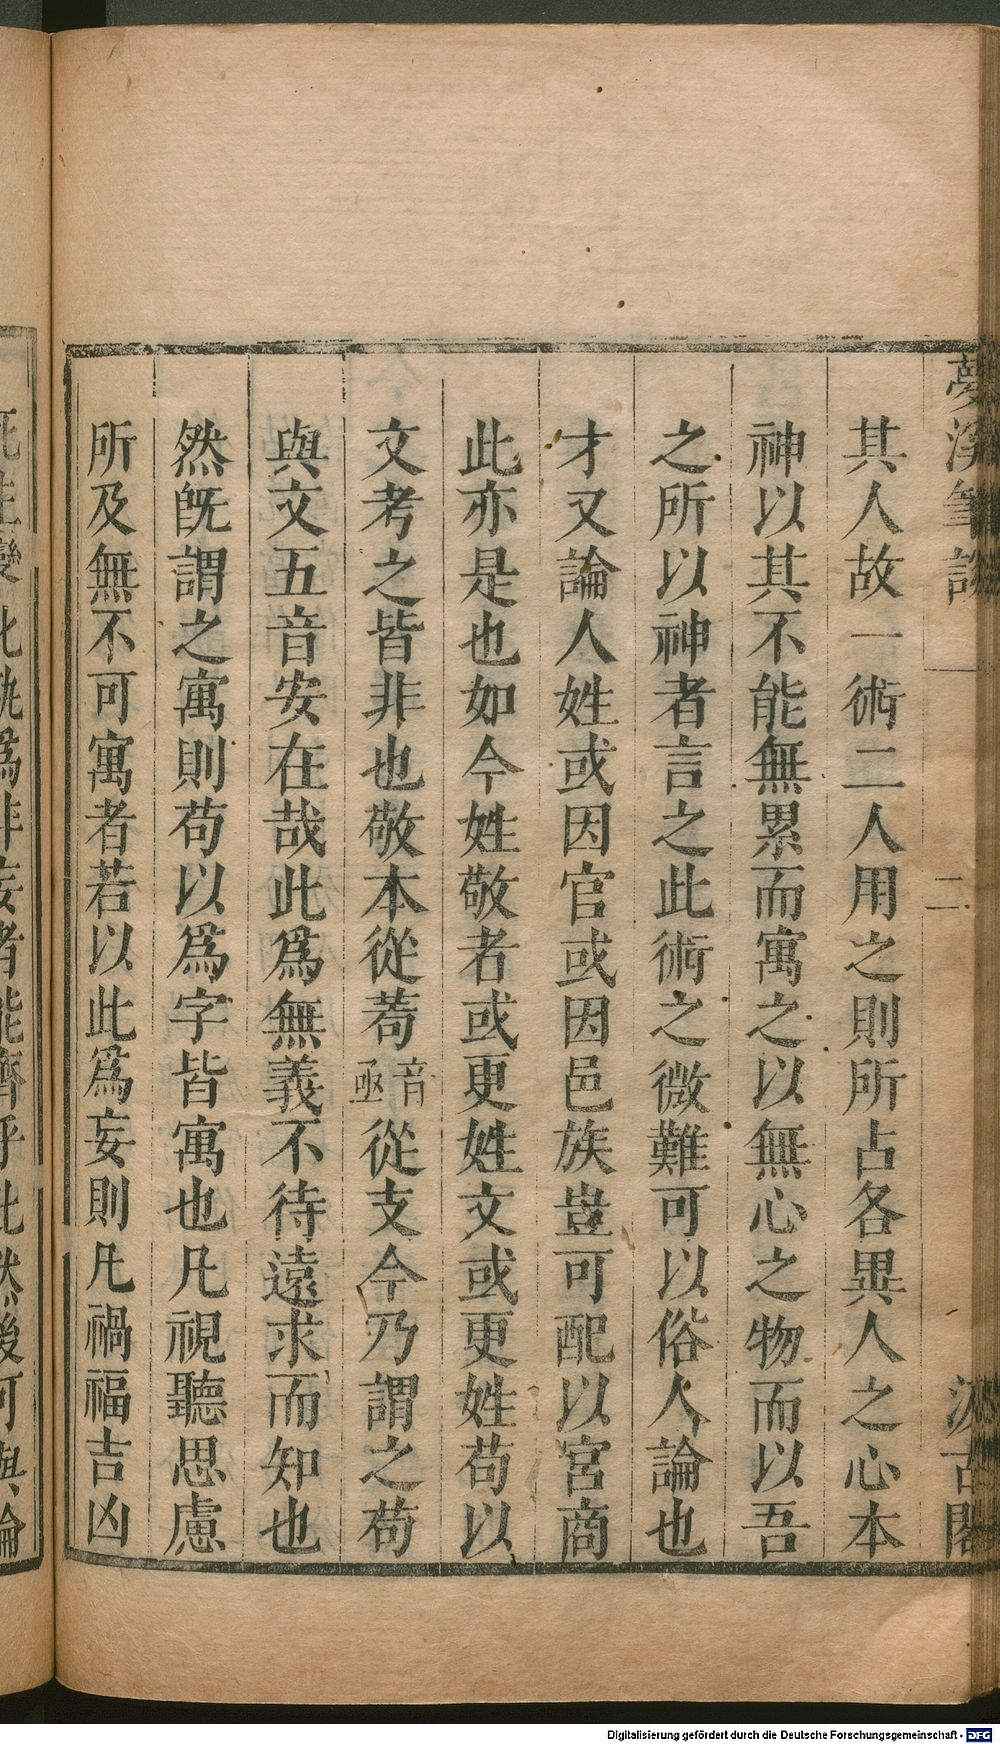 夢溪筆談 二 汲古閣
其人故一術二人用之則所占各異人之心本
神以其不能無累而寓之以無心之物而以吾
之所以神者言之此術之微難可以俗人論也
才又論人姓或因官或因邑族豈可配以宮商
此亦是也如今姓敬者或更姓文或更姓苟以
文考之皆非也敬本從茍音亟從支今乃謂之苟
與文五音安在哉此爲無義不待遠求而知也
然旣謂之寓則苟以爲字皆寓也凡視聽思慮
所及無不可寓者若以此爲妄則凡禍福吉凶
死生變化孰爲非妄者能齊乎此然後可與論
Digitalisierung gefördert durch die Deutsche Forschungsgemeinschaft - DFG